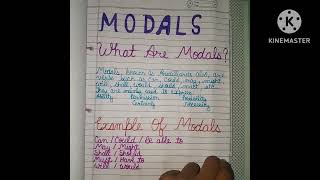 MODALS
What Are Modals?
Modals, known as Auxiliaries also, are
verbs such as can, could, may, might
will, shall, would, should, must etc.
they are mainly used to express
Ability Permission Possibility
Certainty Necessity
Example Of Modals
Can / Could / be able to
May / Might
Shall / Should
Must / Have to
Will / Would
KINEMASTER